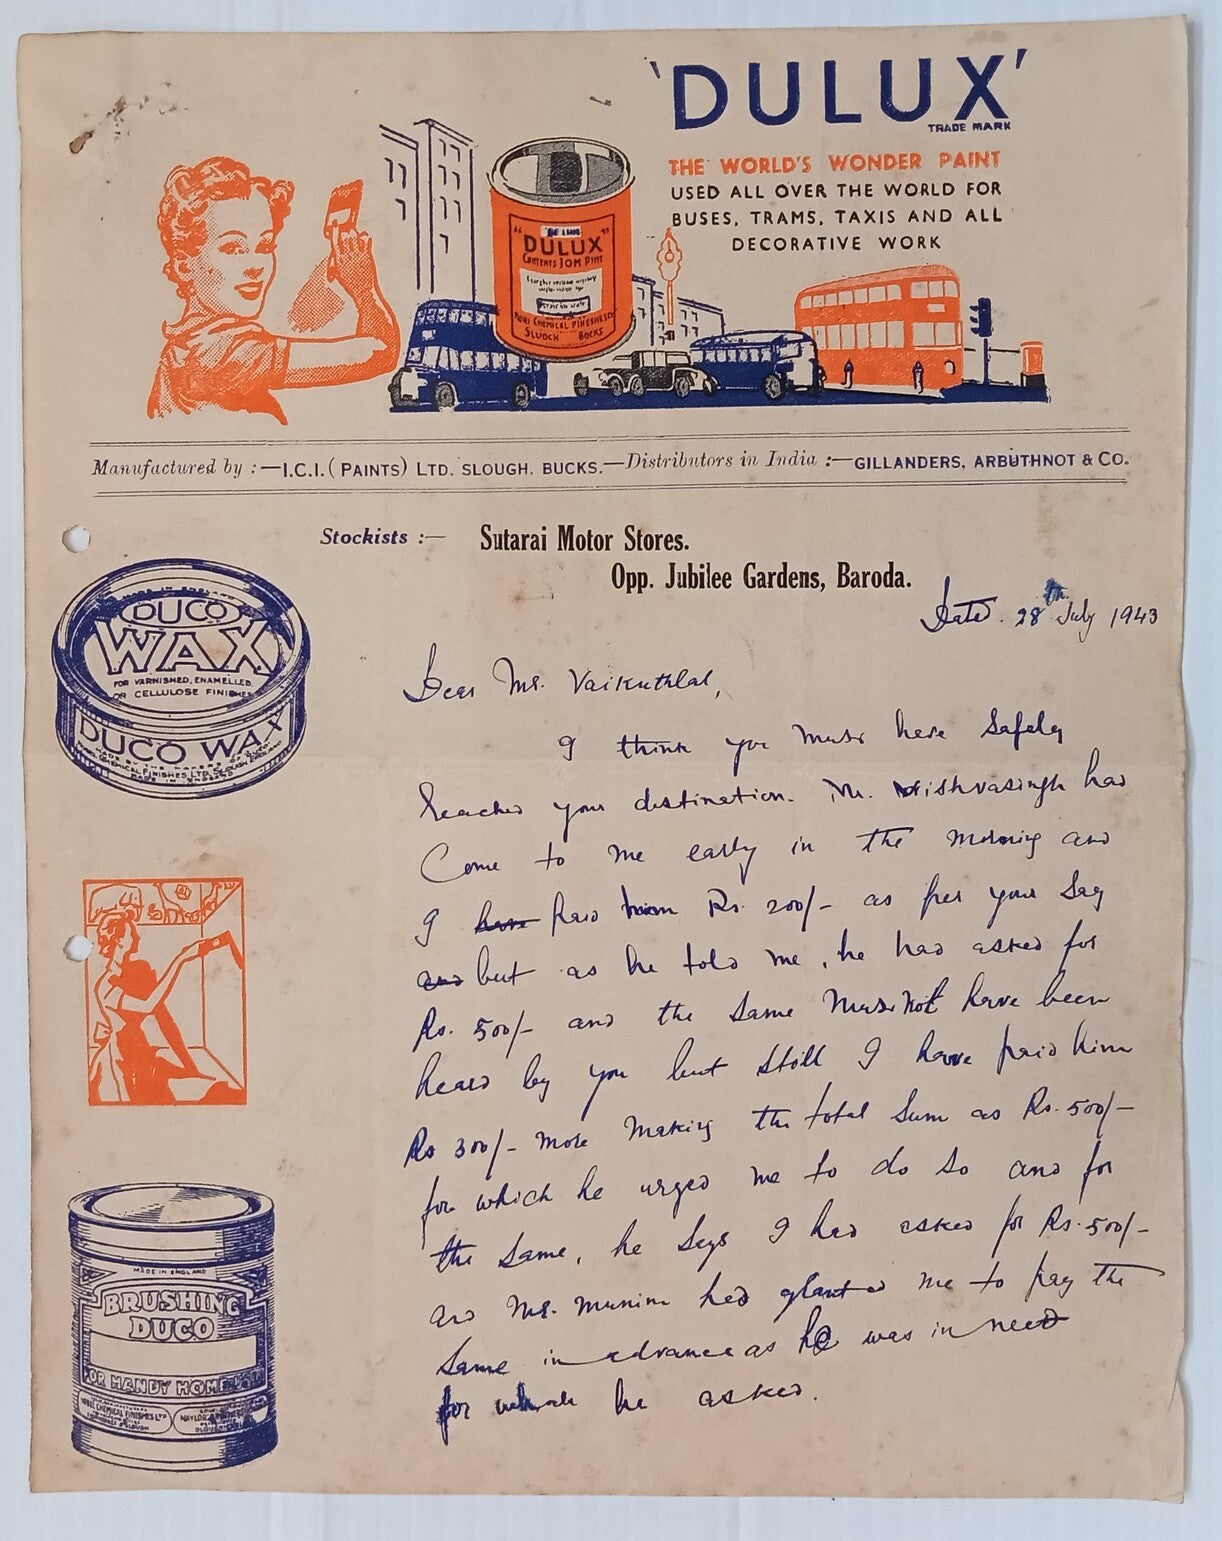 'DULUX'
TRADE MARK
THE WORLD'S WONDER PAINT
USED ALL OVER THE WORLD FOR
BUSES, TRAMS, TAXIS AND ALL
DECORATIVE WORK
"DULUX"
SLUOCH BOCKS
Manufactured by :—I.C.I. (PAINTS) LTD. SLOUGH. BUCKS.—Distributors in India :—GILLANDERS, ARBUTHNOT & CO.
Stockists :— Sutarai Motor Stores.
Opp. Jubilee Gardens, Baroda.
Dated. 28th July 1943
DUCO
WAX
FOR VARNISHED, ENAMELLED
OR CELLULOSE FINISHES
DUCO WAX
MADE IN ENGLAND
Dear Mr. Vaikuthlal,
I think you must have safely
reached your destination. Mr. Vishvasingh had
Come to me early in the morning and
I have paid him Rs. 200/- as per your say
and but as he told me, he had asked for
Rs. 500/- and the same must not have been
heard by you but still I have paid him
Rs 300/- more making the total sum as Rs. 500/-
for which he urged me to do so and for
the same, he says I had asked for Rs. 500/-
and Mr. Munim had granted me to pay the
same in advance as he was in need
for he asked.
MADE IN ENGLAND
BRUSHING
DUCO
FOR HANDY HOME USE